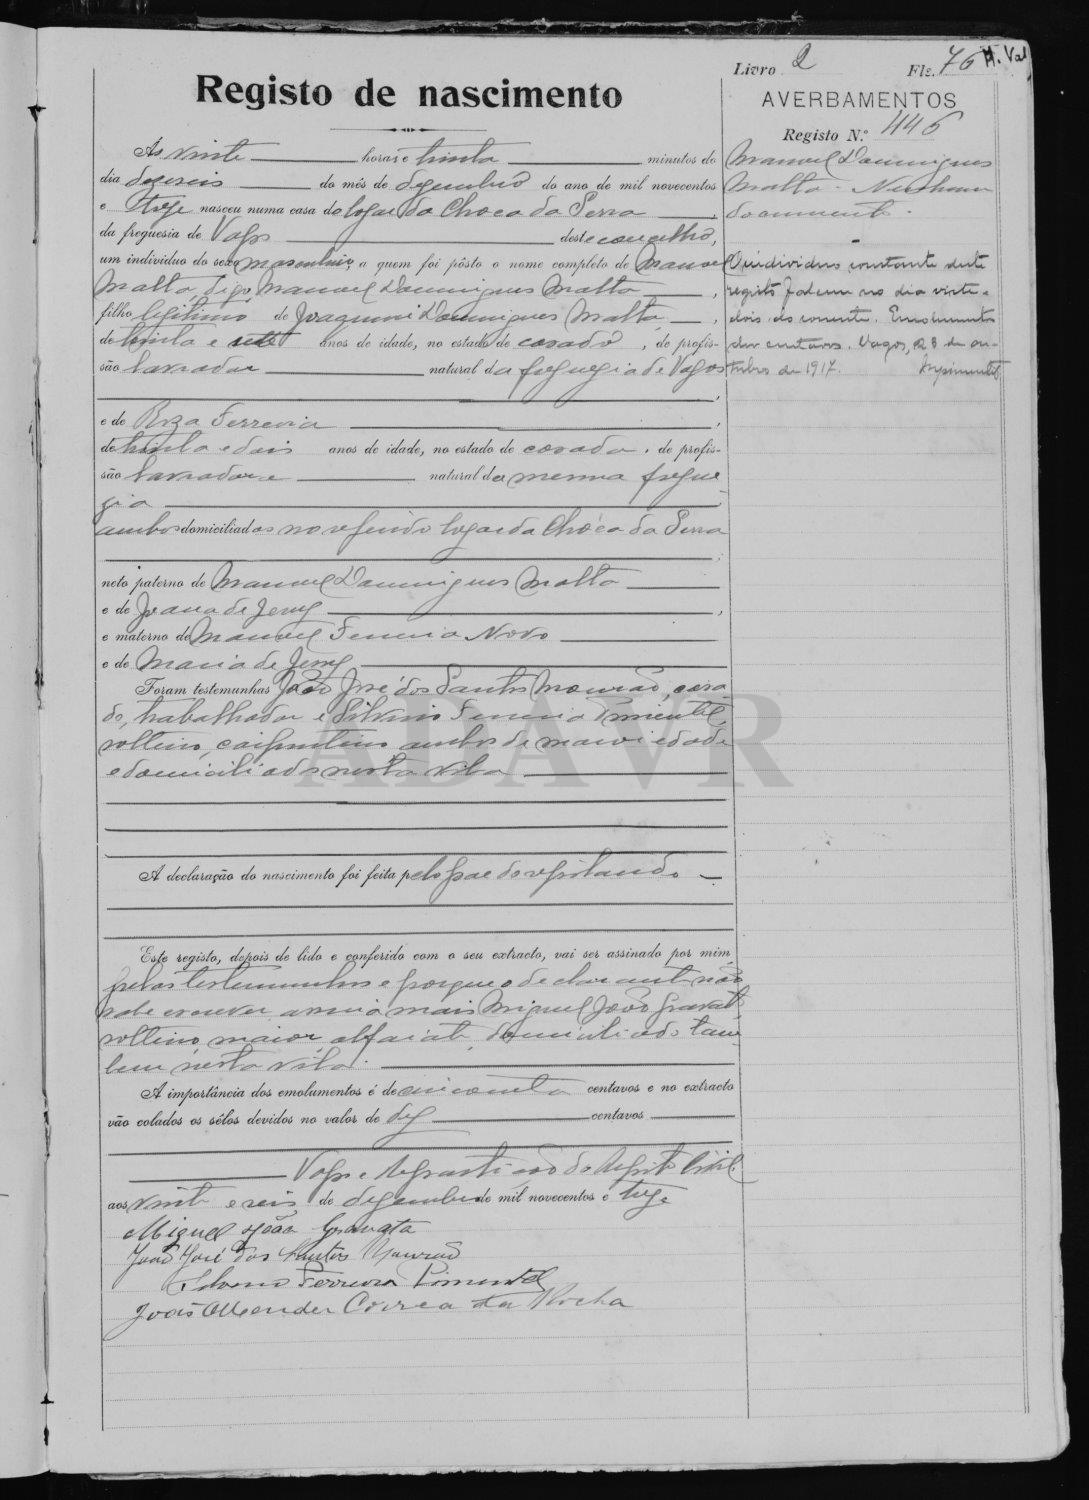 Livro 2 Fls. 76 M. Val
Registo de nascimento
AVERBAMENTOS
Registo N.º 446
Ás vinte horas e trinta minutos do
dia dezeseis do mês de dezembro do ano de mil novecentos
e treze nasceu numa casa do logar da Choca da Serra,
da freguesia de Vagos deste concelho,
um individuo do sexo masculino a quem foi pôsto o nome completo de Manuel
Malta, digo, Manuel Domingues Malta,
filho legitimo de Joaquim Domingues Malta,
de trinta e sete anos de idade, no estado de casado, de profis-
são lavrador natural da freguezia de Vagos
e de Roza Ferreira,
de trinta e dois anos de idade, no estado de casada, de profis-
são lavradora natural da mesma fregue
zia
ambos domiciliados no referido logar da Chóca da Serra
neto paterno de Manuel Domingues Malta
e de Joana de Jesus,
e materno de Manuel Ferreira Novo
e de Maria de Jesus
Foram testemunhas João José dos Santos Mourão, casa
do, trabalhador e Silverio Ferreira Pimentel,
solteiro, carpinteiro ambos de maior idade
e domiciliados nesta vila
A declaração do nascimento foi feita pelo pae do registando
Este registo, depois de lido e conferido com o seu extracto, vai ser assinado por mim
pelas testemunhas e porque o declarante não
sabe escrever assina mais Miguel João Gravato,
solteiro, maior alfaiate, domiciliado tam
bem nesta vila.
A importância dos emolumentos é de cincoenta centavos e no extracto
vão colados os sêlos devidos no valor de dez centavos
Vagos e Repartição do Registo Civil
aos vinte e seis de dezembro de mil novecentos e treze
Miguel João Gravata
João José dos Santos Mourão
Silverio Ferreira Pimentel
João Mendes Correa da Rocha
Manuel Domingues
Malta - Nenhum
documento.
O individuo constante deste
registo faleceu no dia vinte e
dois do corrente. Emolumentos
dez centavos. Vagos, 28 de ou-
tubro de 1917.
ADAVR